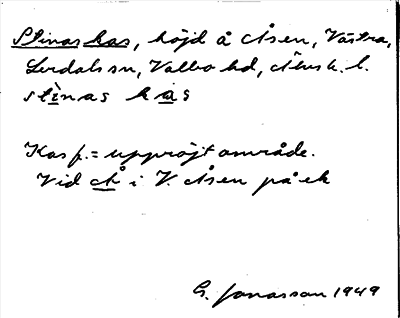 Stinas kas, höjd å Åsen, Västra,
Lerdals sn, Valbo hd, Älvsb. l.
stìnas kas
Kas f. = uppröjt område.
Vid Å i V. Åsen på ek
G. Jonasson 1949